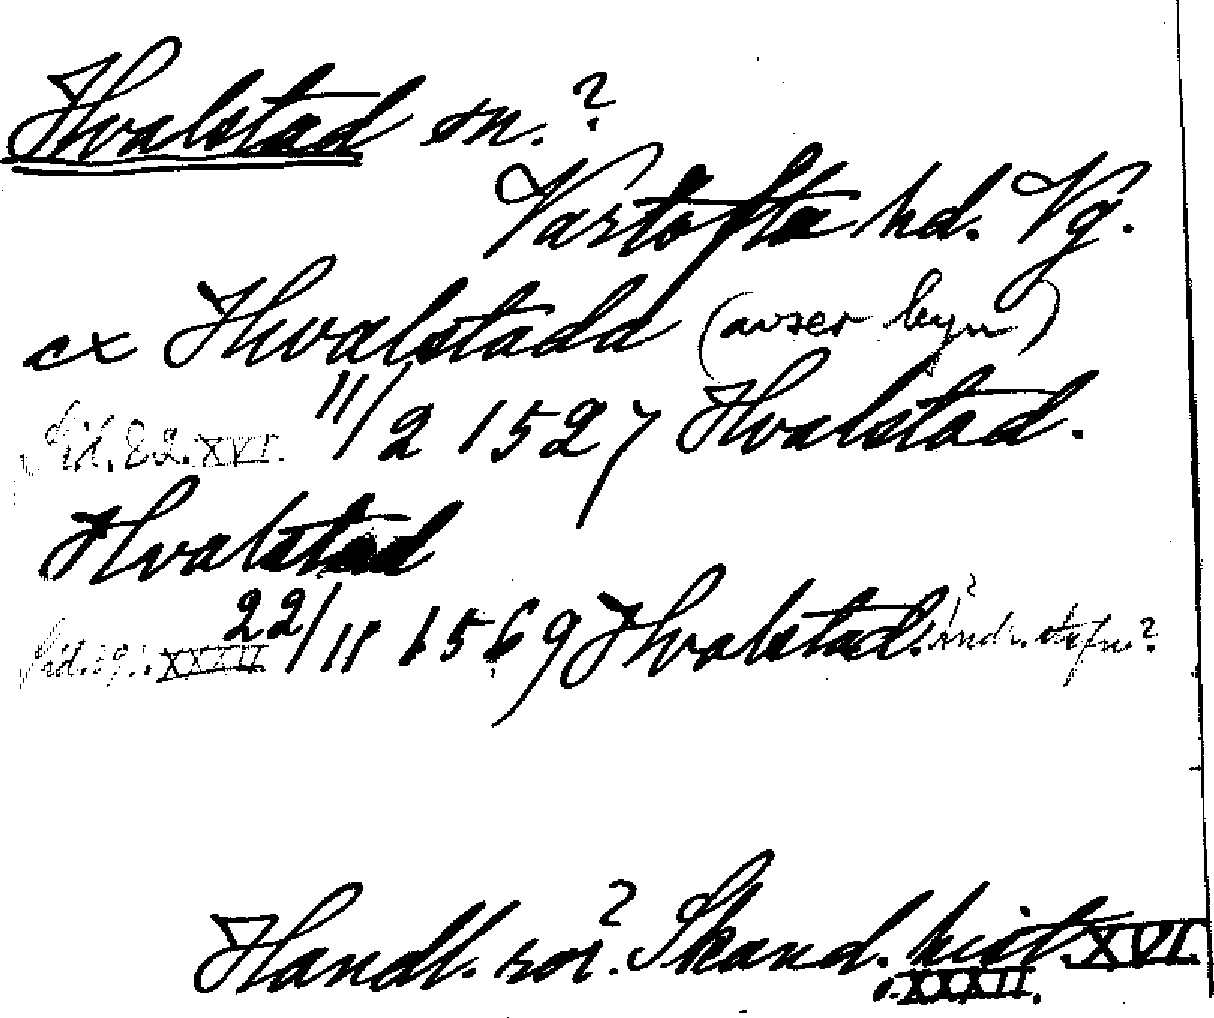 Hvalstad sn.?
Vartofta hd. Vg.
ex Hwalstadd (avser byn)
Sid. 82. XVI. 11/2 1527 Hvalstad.
Hvalstad
Sid. 191. XXXII. 22/11 1569 Hvalstad.
Handl. rör. Skand. hist. XVI.
o. XXXII.